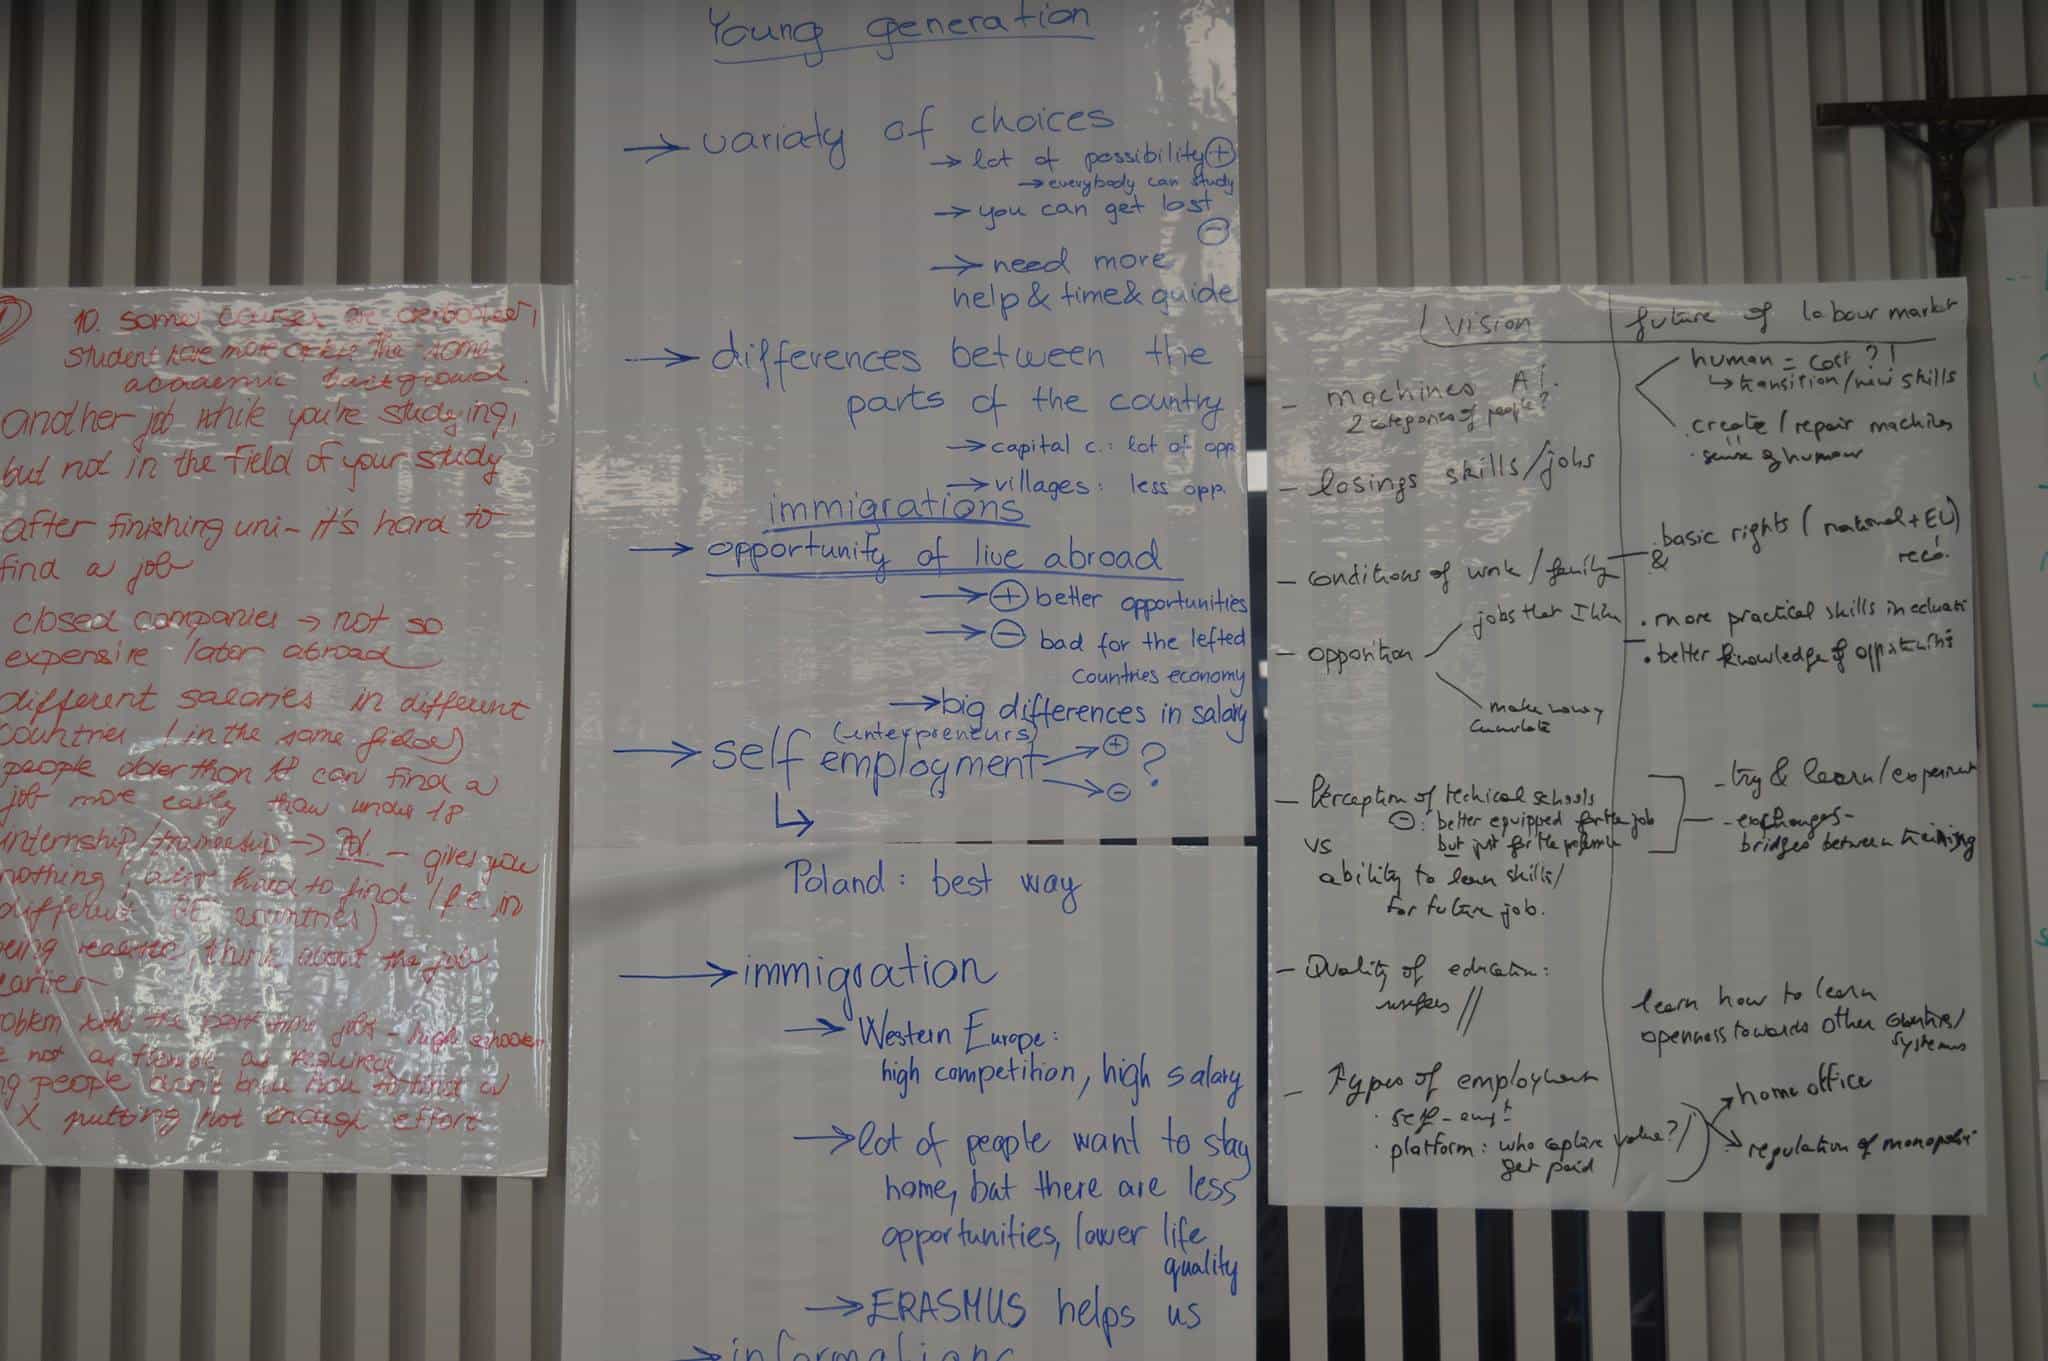 10. some courses are
student have more or less the same
academic background.
another job while you're studying,
but not in the field of your study
after finishing uni - it's hard to
find a job
closed companies → not so
expensive labor abroad
different salaries in different
countries (in the same fields)
people older than 18 can find a
job more easily than under 18
internship/traineeship → - gives you
nothing, later hard to find (f.e. in
different countries)
being realistic, think about the job
earlier
problem with the part time jobs - high schools
not as flexible as required
people don't know how to find a
X putting not enough effort
Young generation
→ variaty of choices
→ lot of possibility ⊕
→ everybody can study
→ you can get lost
⊖
→ need more
help & time & guide
→ differences between the
parts of the country
→ capital c.: lot of opp.
→ villages: less opp.
immigrations
→ opportunity of live abroad
→ ⊕ better opportunities
→ ⊖ bad for the lefted
countries economy
→ big differences in salary
(unterpreneurs)
→ self employment → ⊕ → ⊖ ?
↳
Poland: best way
→ immigration
→ Western Europe:
high competition, high salary
→ lot of people want to stay
home, but there are less
opportunities, lower life
quality
→ ERASMUS helps us
→ informations
Vision
- machines AI.
2 categories of people?
- losings skills/jobs
- conditions of work / family
- opposition
jobs that I like
make money
- Perception of technical schools
⊖: better equipped for the job
but just for the
vs
ability to learn skills/
for future job.
- Quality of education:
- Types of employment
· self-empt
· platform: who capture value?/
get paid
future of labour market
human = cost ?!
↳ transition/new skills
· create / repair machines
· sense of humour
· basic rights (national + EU)
&
· more practical skills in educati
· better knowledge of opportunities
- try & learn/experiment
- exchanges -
bridges between training
learn how to learn
openness towards other countries/
systems
home office
regulation of monopolies